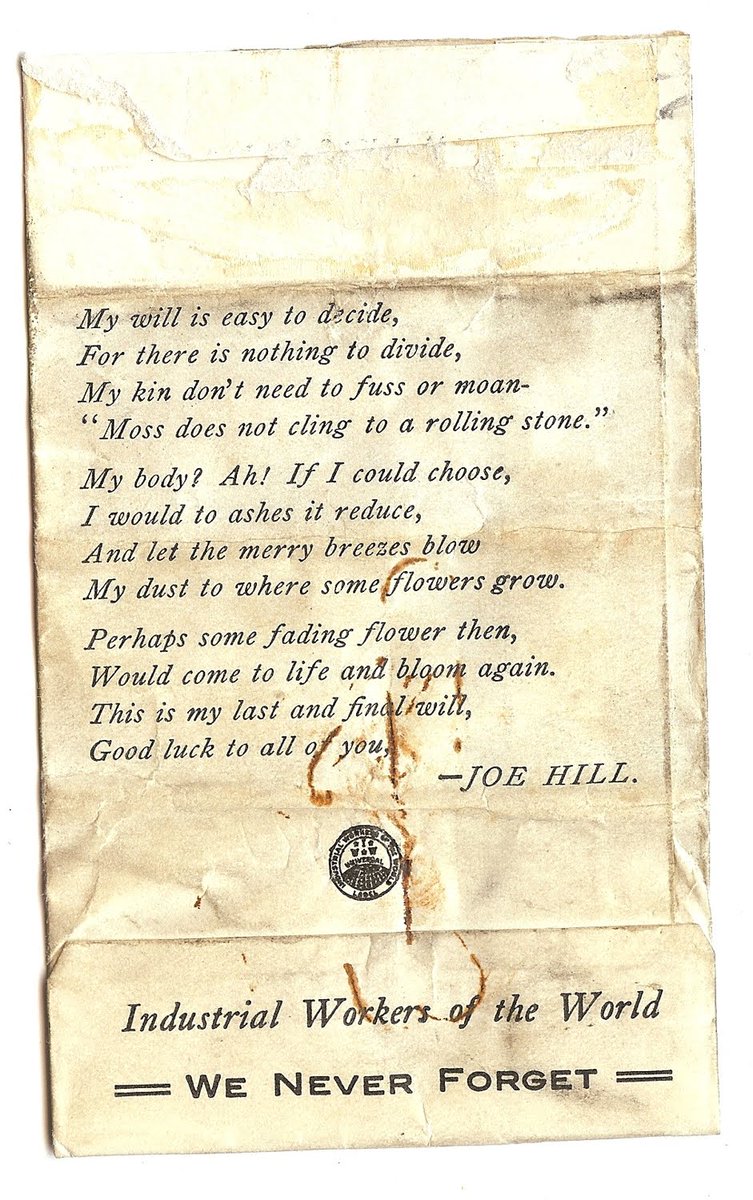 My will is easy to decide,
For there is nothing to divide,
My kin don't need to fuss or moan-
“Moss does not cling to a rolling stone.”
My body? Ah! If I could choose,
I would to ashes it reduce,
And let the merry breezes blow
My dust to where some flowers grow.
Perhaps some fading flower then,
Would come to life and bloom again.
This is my last and final will,
Good luck to all of you,
—JOE HILL.
INDUSTRIAL WORKERS OF THE WORLD
I W W
UNIVERSAL
LABEL
Industrial Workers of the World
WE NEVER FORGET